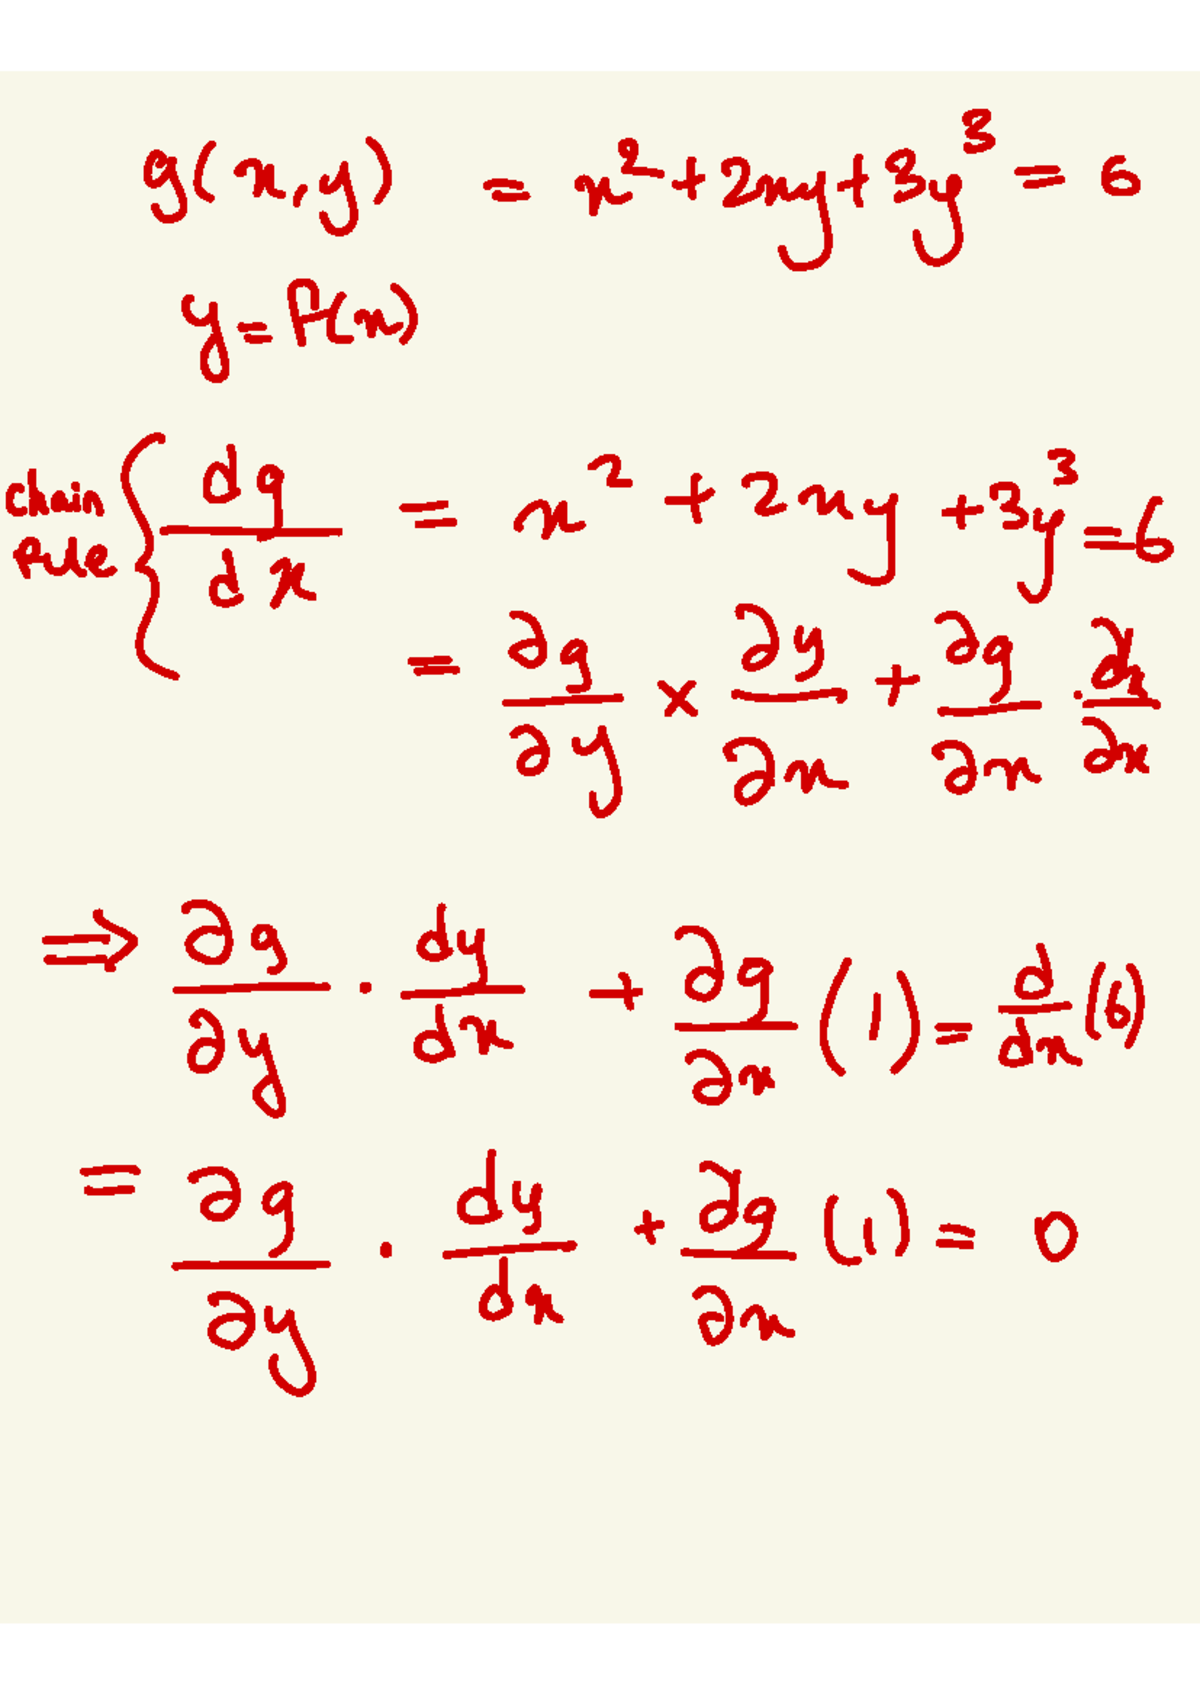 g(x,y) = x²+2xy+3y³ = 6
y=f(x)
Chain Rule { dg/dx = x² + 2xy +3y³ =6
= ∂g/∂y × ∂y/∂x + ∂g/∂x . ∂x/∂x
⇒ ∂g/∂y . dy/dx + ∂g/∂x (1) = d/dx (6)
= ∂g/∂y . dy/dx + ∂g/∂x (1) = 0